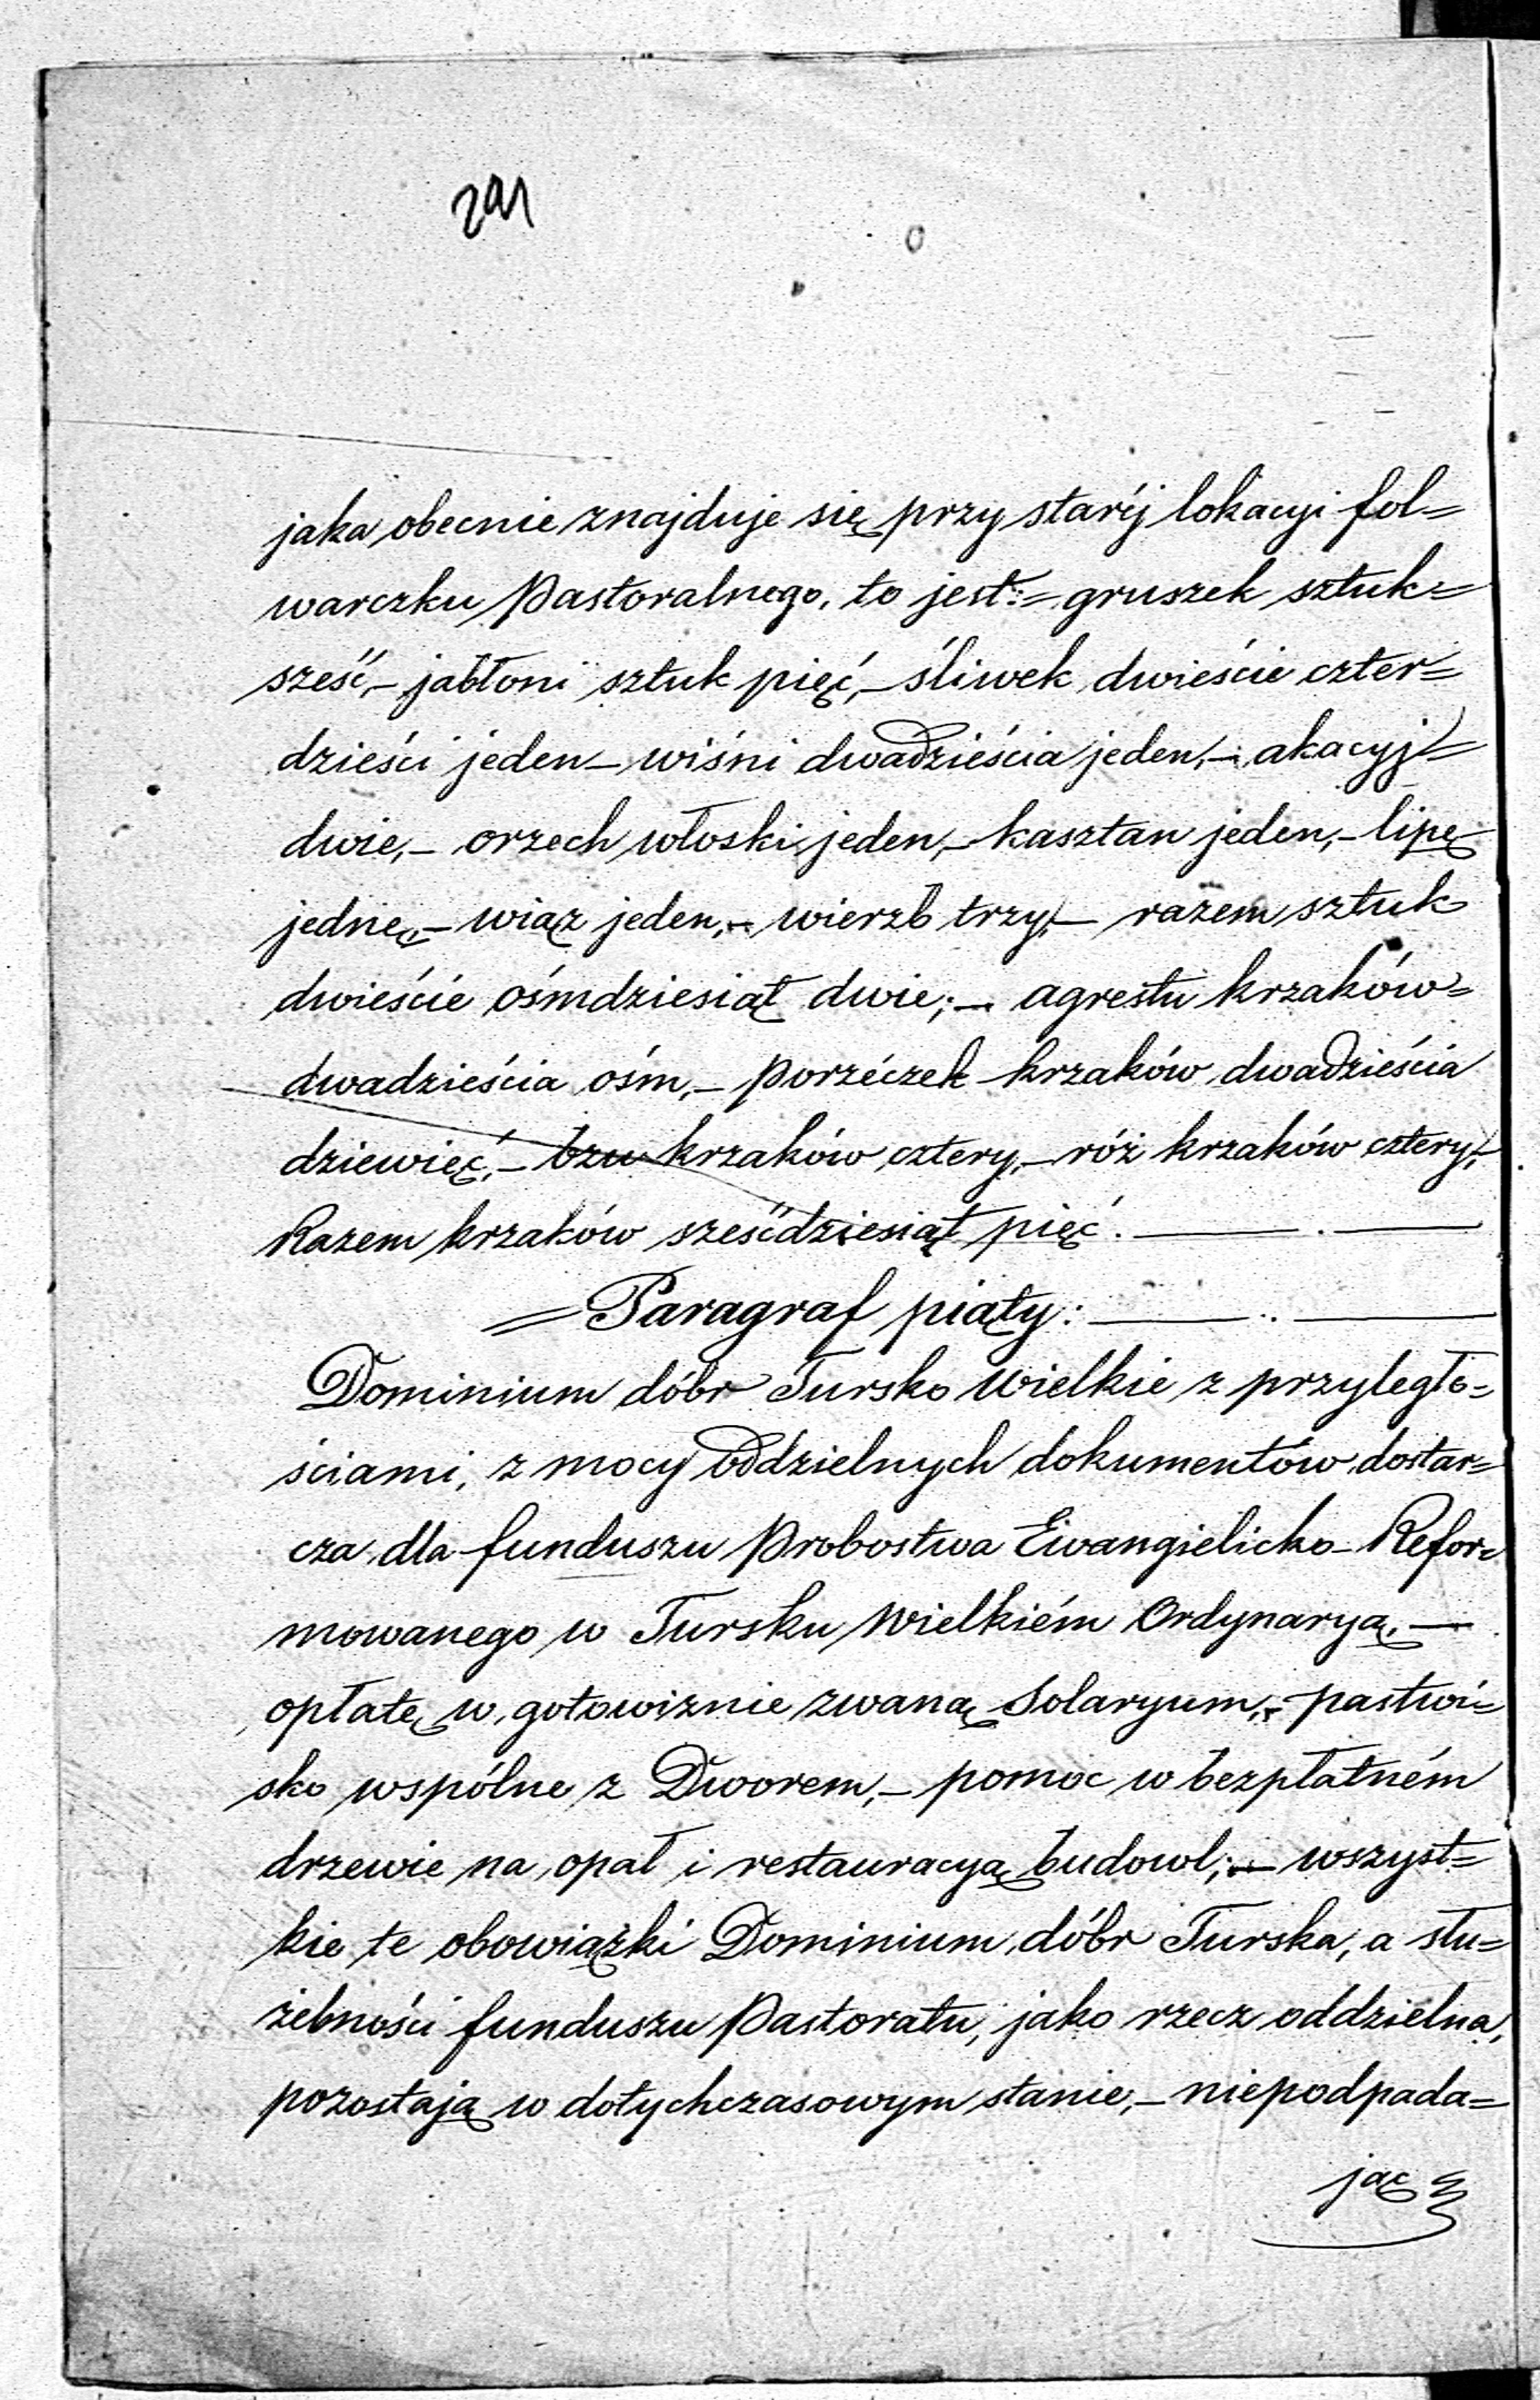 291
jaka obecnie znajduje się przy staréj lokacyi fol=
warczku Pastoralnego, to jest:= gruszek sztuk=
sześć,– jabłoni sztuk pięć,– śliwek dwieście czter=
dzieści jeden– wiśni dwadzieścia jeden,– akacyj=
dwie,– orzech włoski jeden,– kasztan jeden,– lipę
jednę,– wiąz jeden,– wierzb trzy,– razem sztuk
dwieście ośmdziesiąt dwie;– agrestu krzaków=
dwadzieścia ośm,– porzéczek krzaków dwadzieścia
dziewięć,– bzu krzaków cztery,– róż krzaków cztery,–
Razem krzaków sześćdziesiąt pięć. —— . ——
= Paragraf piąty: —— . ——
Dominium dóbr Tursko Wielkie z przyległo=
ściami, z mocy oddzielnych dokumentów dostar=
cza dla funduszu Probostwa Ewangielicko-Refor=
mowanego w Tursku Wielkiém Ordynaryą, —
opłatę w gotowiznie zwaną Solaryum,– pastwi=
sko wspólne z Dworem,– pomoc w bezpłatném
drzewie na opał i restauracyą budowl;– wszyst=
kie te obowiązki Dominium dóbr Turska, a słu=
żebności funduszu Pastoratu, jako rzecz oddzielna,
pozostają w dotychczasowym stanie,– niepodpada=
jąc